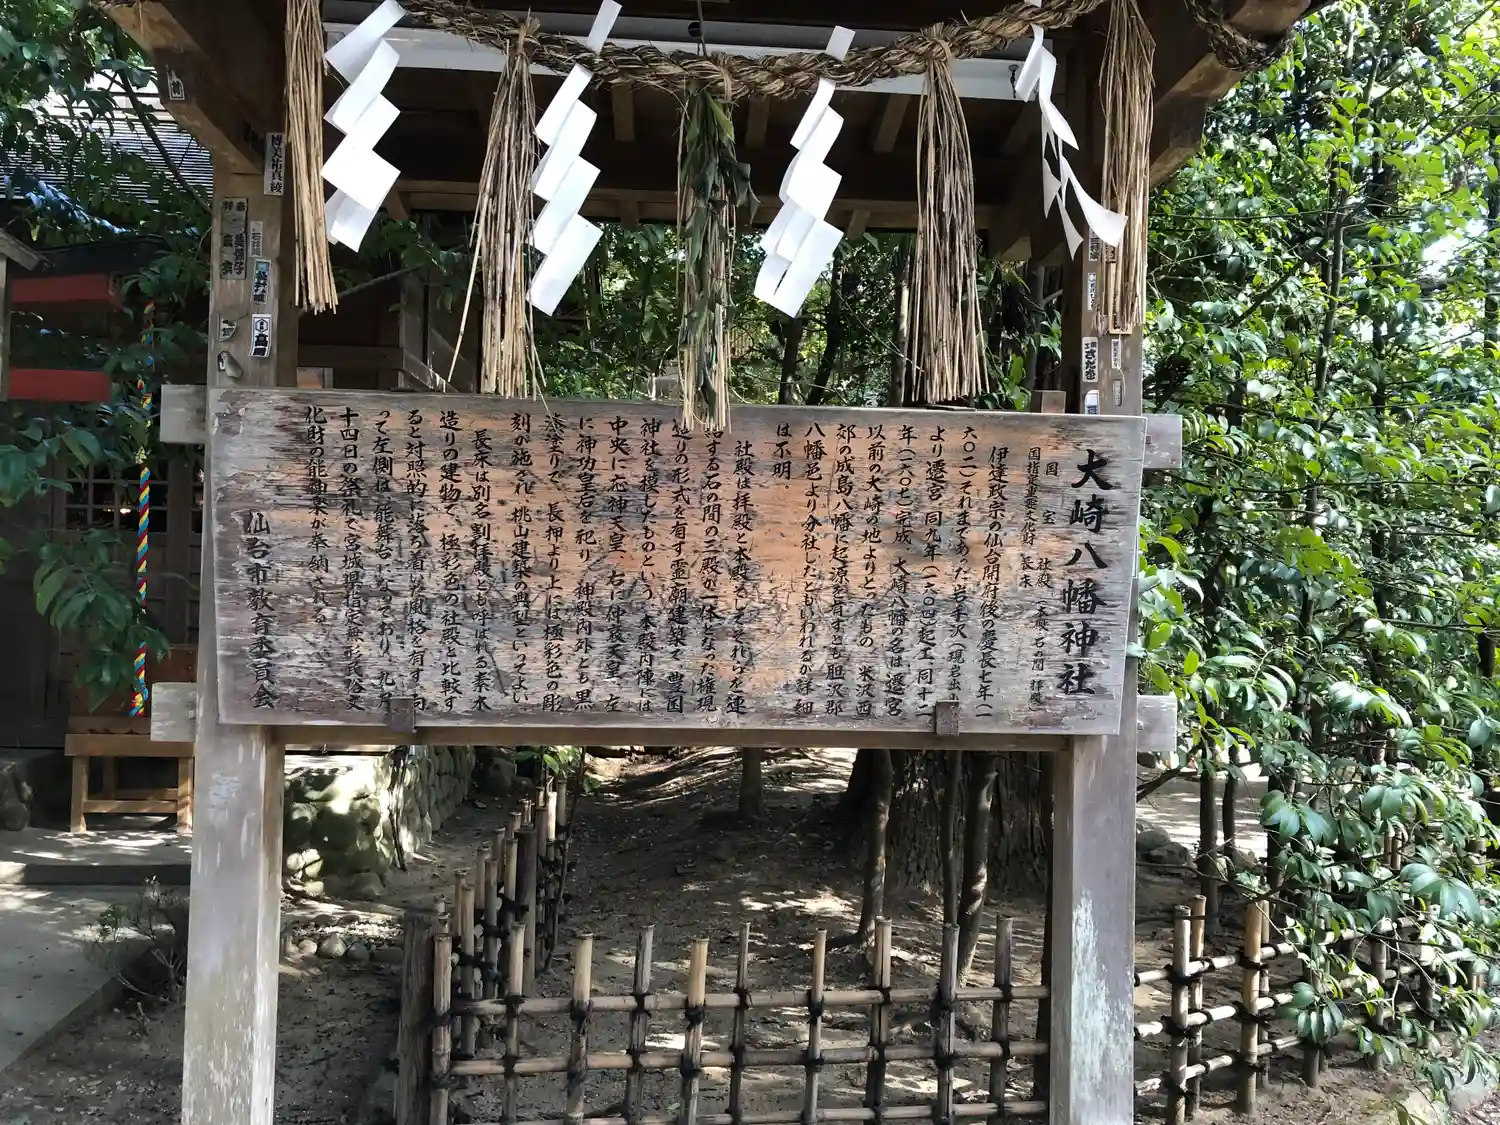 大崎八幡神社
国宝 社殿(本殿 石の間 拝殿)
国指定重要文化財 長床
伊達政宗の仙台開府後の慶長七年(一
六〇二)それまであった岩手沢(現岩出山)
より遷宮、同九年(一六〇四)起工、同十二
年(一六〇七)完成、大崎八幡の名は遷宮
以前の大崎の地よりとったもの、米沢西
郊の成島八幡に起源を有すとも胆沢郡
八幡邑より分社したともいわれるが詳細
は不明
社殿は拝殿と本殿そしてそれらを連
する石の間の三殿が一体となった権現
造りの形式を有す霊廟建築で、豊国
神社を模したものという、本殿内陣には
中央に応神天皇、右に仲哀天皇、左
に神功皇后を祀り、神殿内外とも黒
漆塗りで、長押より上は極彩色の彫
刻が施され、桃山建築の典型といってよい、
長床は別名割拝殿とも呼ばれる素木
造りの建物で、極彩色の社殿と比較す
ると対照的に落ち着いた風格を有す、向
って左側は能舞台になっており、九月
十四日の祭礼で宮城県指定無形民俗文
化財の能神楽が奉納される、
仙台市教育委員会